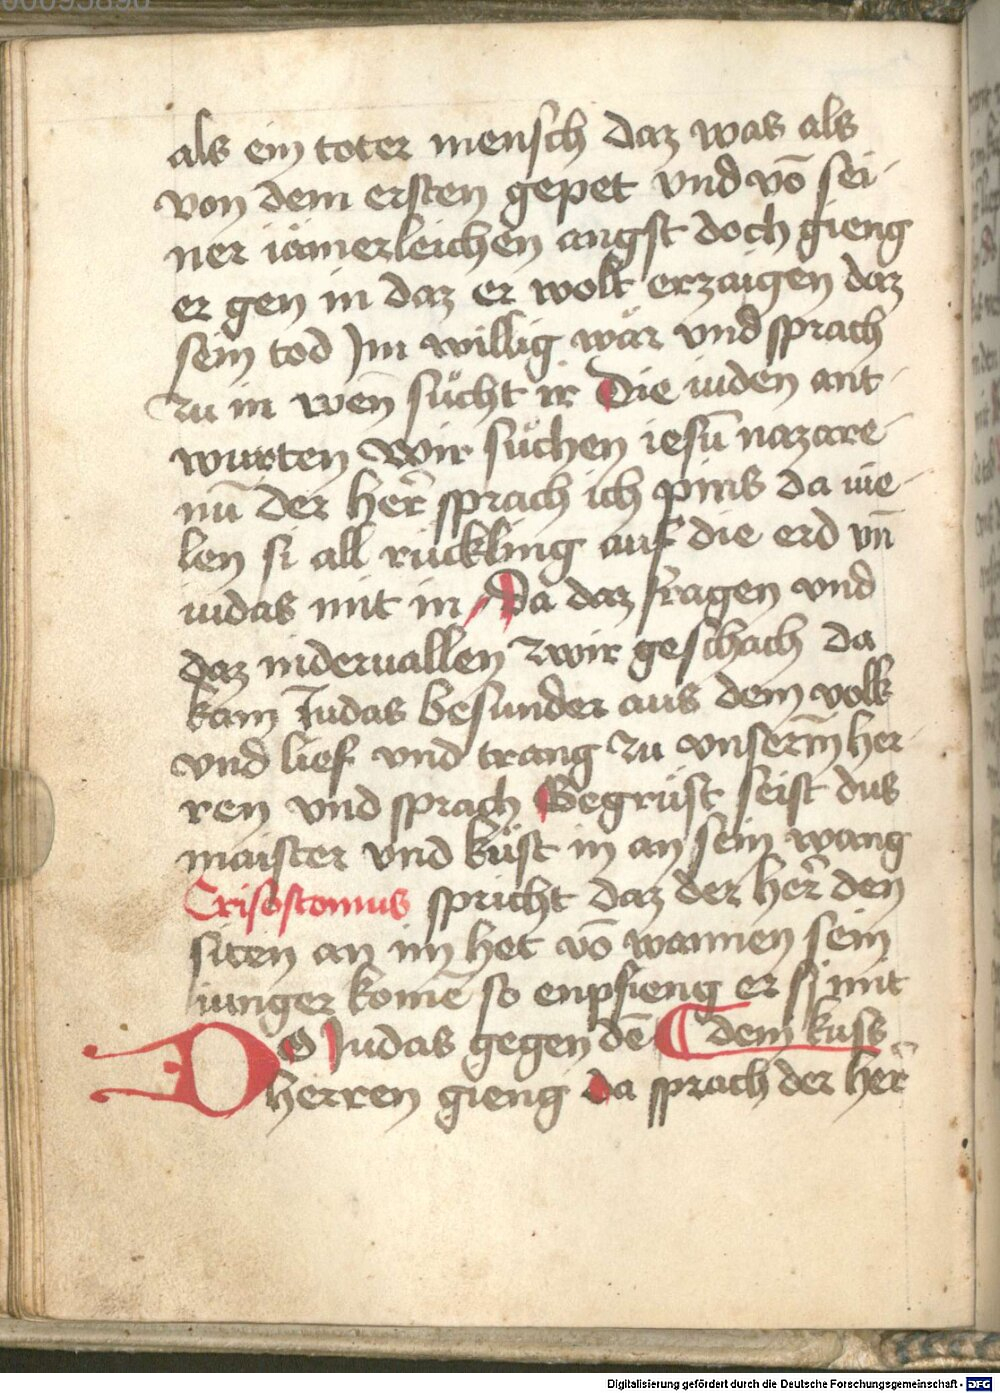 als ein toter mensch daz was als
von dem ersten gepet vnd vō sei-
ner iämerleichen angst doch gieng
er gen in daz er wolt erzaigen daz
sein tod Im willig wär vnd sprach
zu in wen sücht ir Die iuden ant-
wurten Wir süchen iesū nazare-
nū der her̄ sprach ich pins da vie-
len si all rückling auf die erd vn̄
iudas mit in Da daz fragen vnd
daz nideruallen zwir geschach da
kam Iudas besunder aus dem volk
vnd lief vnd trang zu vnserm her-
ren vnd sprach Gegrüst seist dus
maister vnd küst in an sein wang
Crisostomus spricht daz der her̄ den
siten an im het vō wannen sein
iunger komē so enpfieng er si mit
dem kuss
Do Iudas gegen dē
herren gieng da sprach der her̄
Digitalisierung gefördert durch die Deutsche Forschungsgemeinschaft - DFG